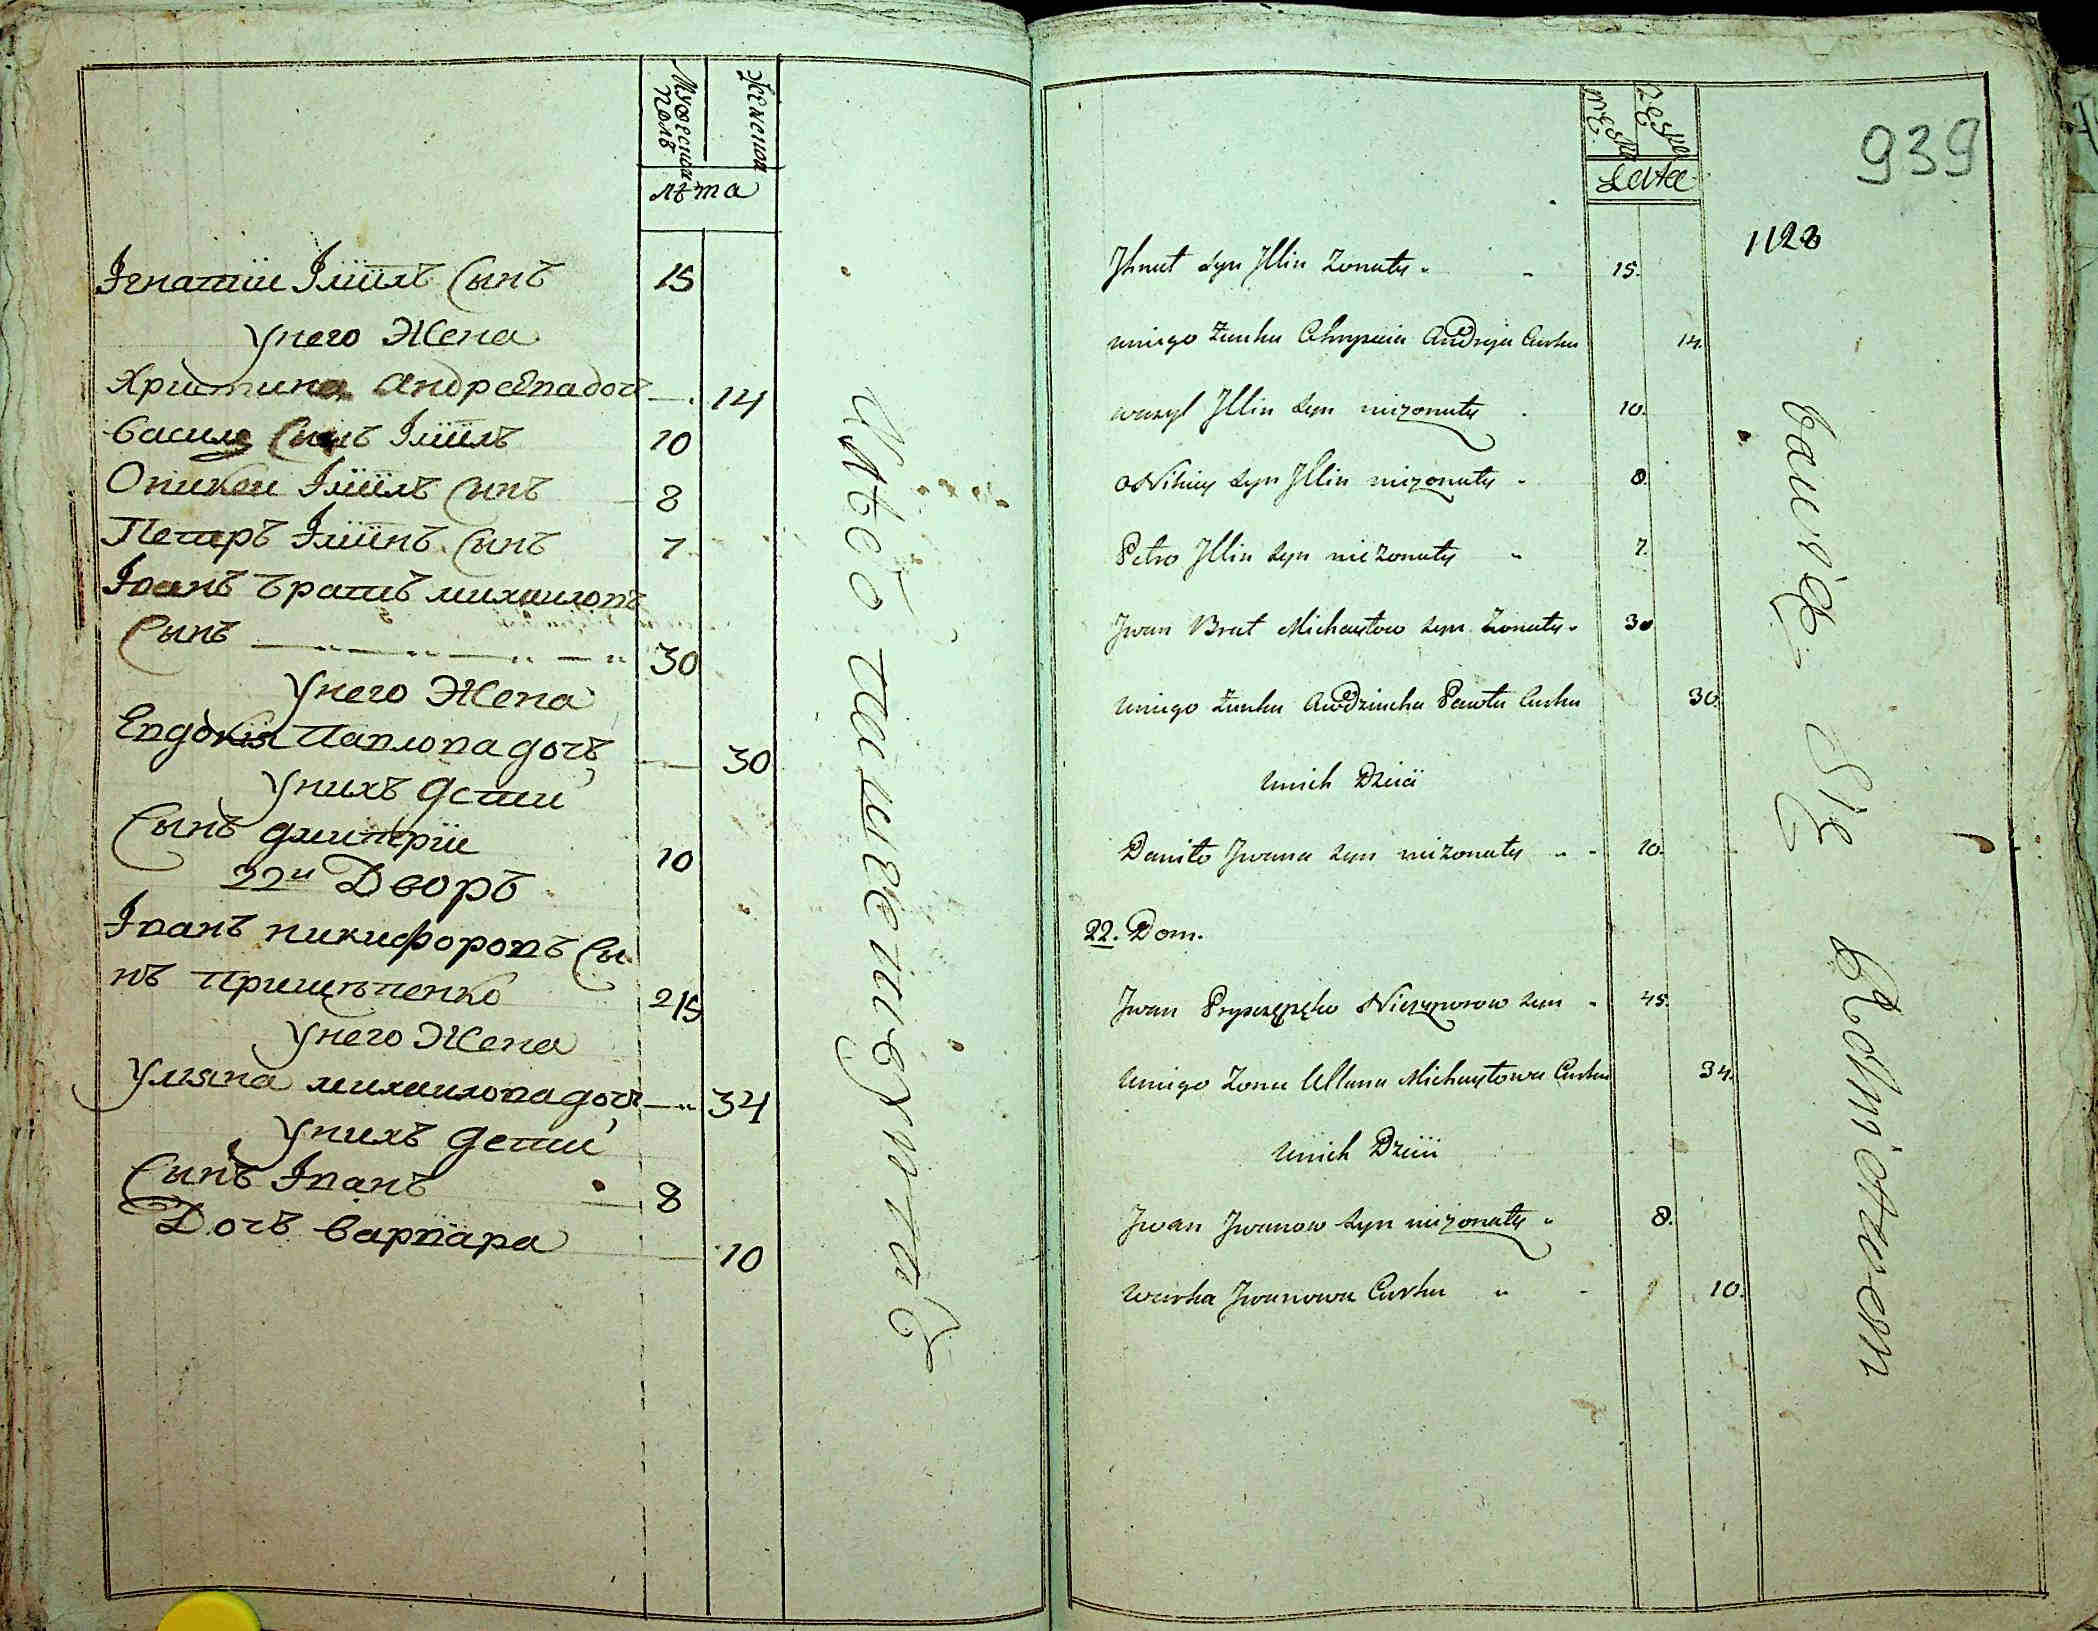 Мужеска полъ
Женска
лѣта
Ігнатіи Іліинъ Сынъ 15
Унего Жена
Христина Андреева дочь 14
Василь Сынъ Іліинъ 10
Оникеи Іліинъ Сынъ 8
Петръ Іліинъ Сынъ 7
Іванъ братъ михаиловъ
Сынъ 30
Унего Жена
Евдокія Павлова дочь 30
Унихъ дети
Сынъ дмитріи 10
22и Дворъ
Іванъ никифоровъ Сы
нъ Прищепенко 45
Унего Жена
Уліяна михаилова дочь 34
Унихъ дети
Сынъ Іванъ 8
Дочь варвара 10
męska
żęska
Lata
939
1128
Jhnat syn Illin żonaty 15.
uniego żonka Chrypcia Andreja Curka 14.
wasyl Illin syn nieżonaty 10.
Nikiey syn Illin nieżonaty 8.
Petro Illin syn nieżonaty 7.
Jwan Brat Michayłow syn żonaty 30
uniego żonka Awdziucha Pawła Curka 30.
unich Dzieci
Daniło Jwana syn nieżonaty 10.
22. Dom.
Jwan Pryszczepęko Niczyporow syn 45.
uniego żona Ullana Michayłowa Curka 34.
unich Dzieci
Jwan Jwanow syn nieżonaty 8.
warka Jwanowa Curka 10.